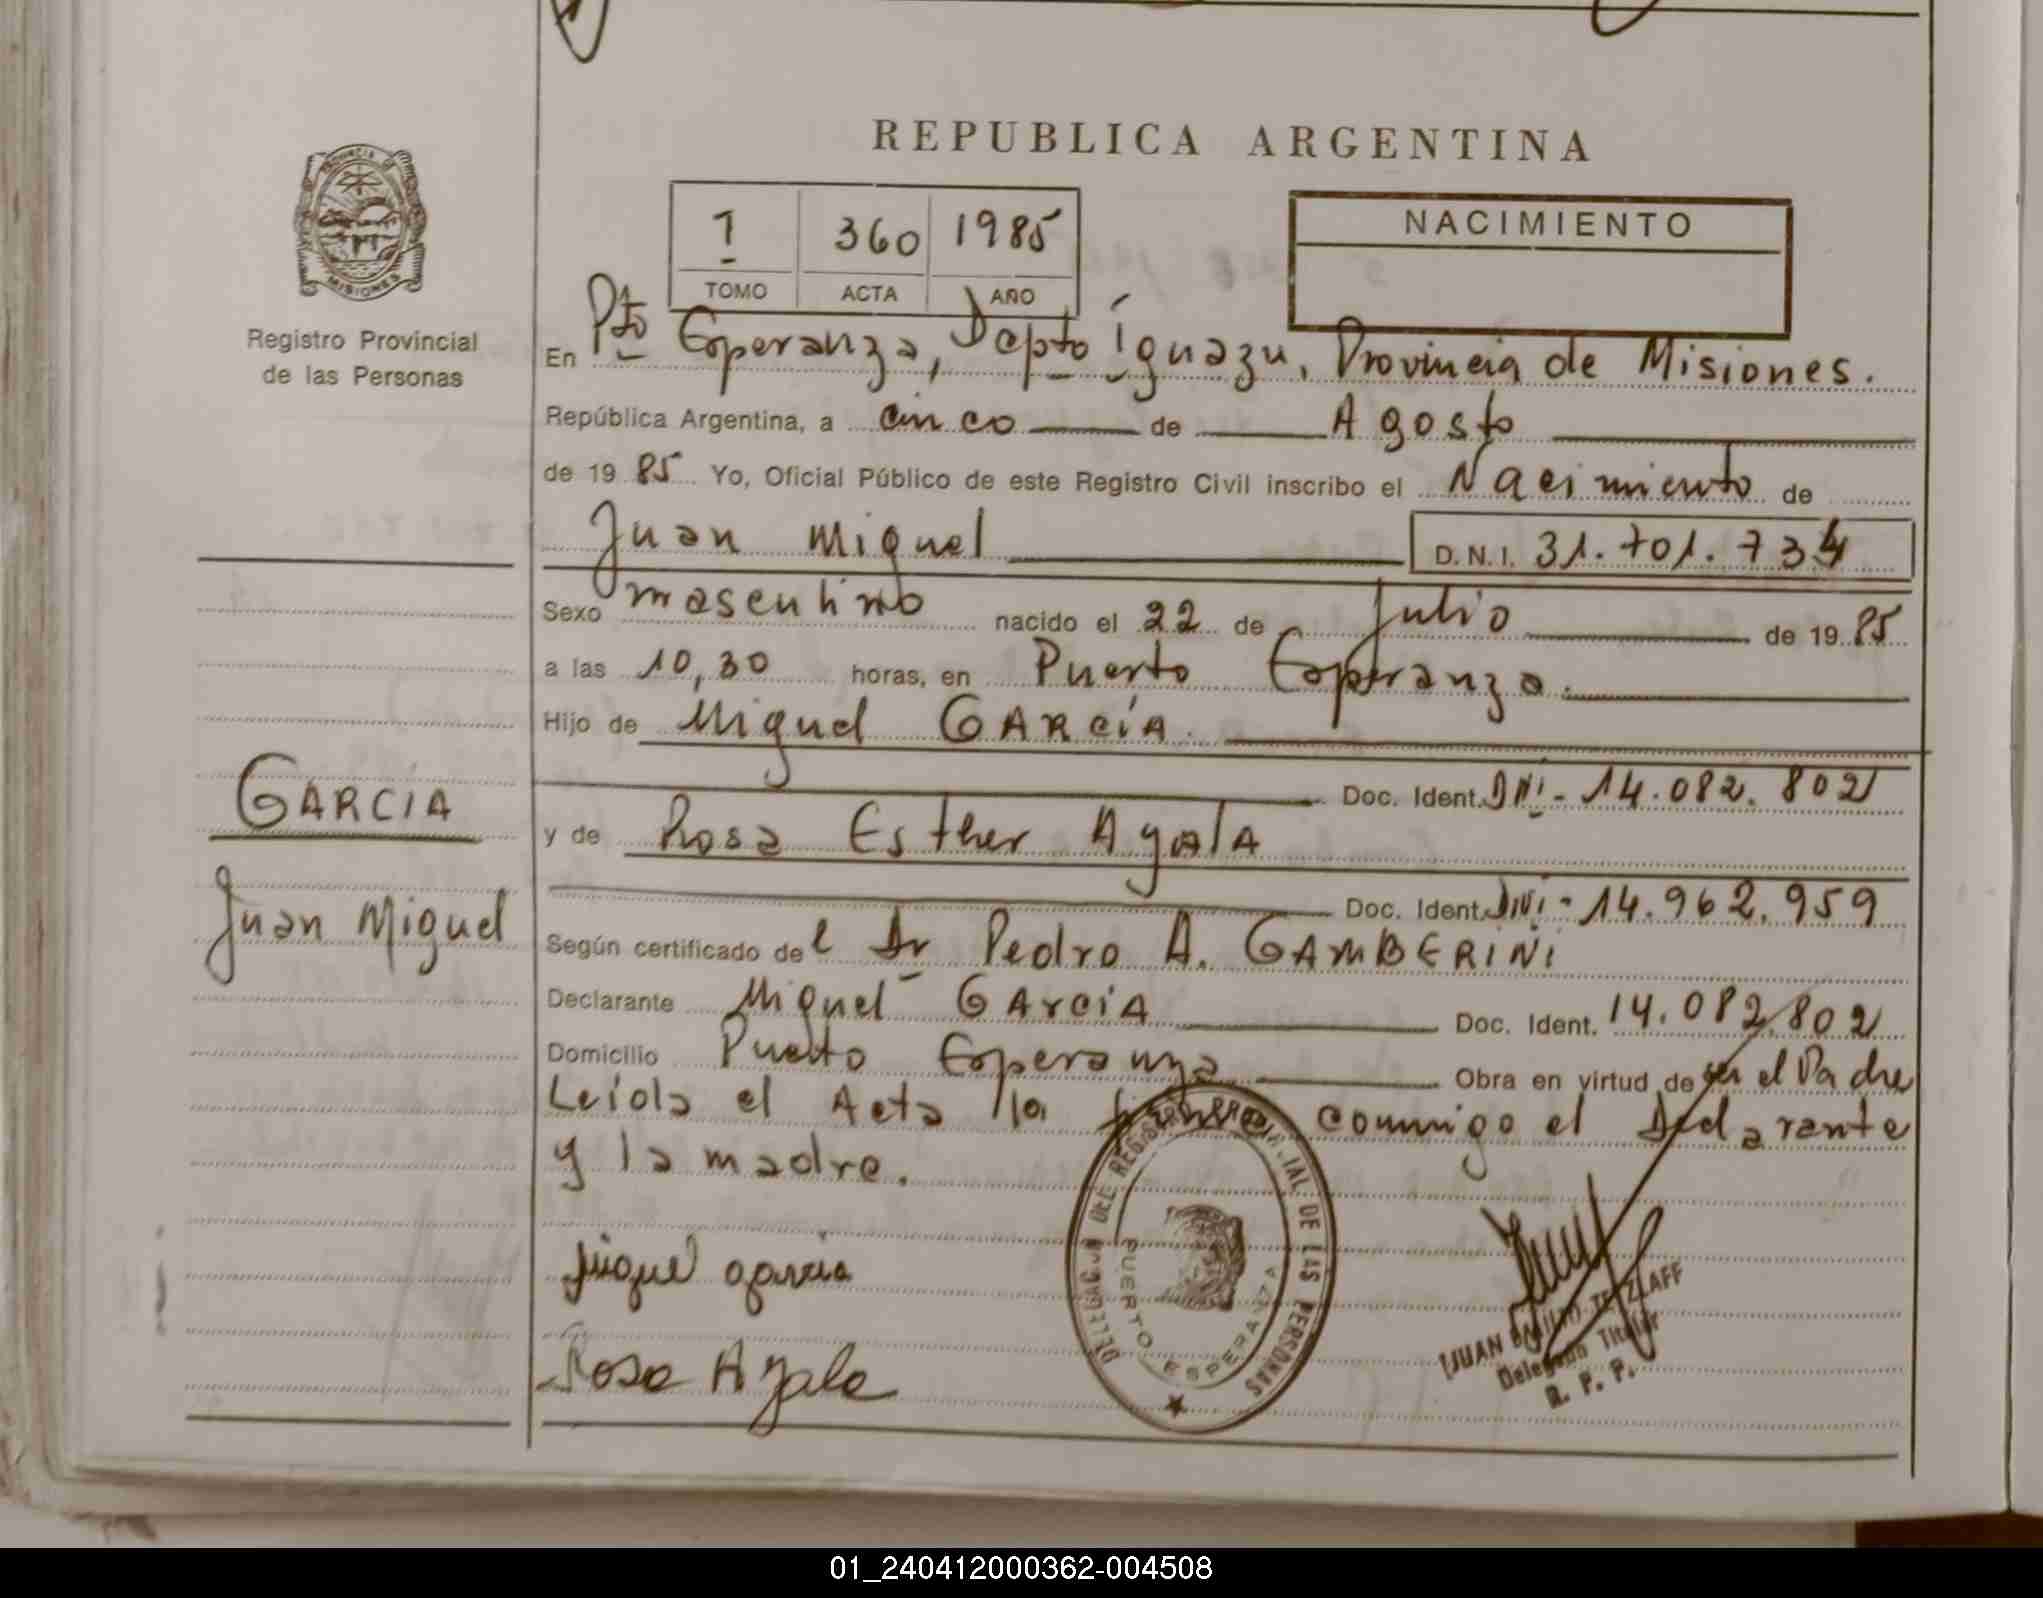 REPUBLICA ARGENTINA
PROVINCIA DE MISIONES
Registro Provincial
de las Personas
1 360 1985
TOMO ACTA AÑO
NACIMIENTO
En Pto Esperanza, Depto Iguazú, Provincia de Misiones.
República Argentina, a cinco de Agosto
de 1985 Yo, Oficial Público de este Registro Civil inscribo el Nacimiento de
Juan Miguel D.N.I. 31.701.734
Sexo masculino nacido el 22 de Julio de 1985
a las 10,30 horas, en Puerto Esperanza.
Hijo de Miguel GARCÍA
Doc. Ident. DNI - 14.082.802
y de Rosa Esther Ayala
Doc. Ident. DNI - 14.962.959
Según certificado del Dr Pedro A. GAMBERINI
Declarante Miguel García Doc. Ident. 14.082.802
Domicilio Puerto Esperanza Obra en virtud de ser el Padre
Leída el Acta la conmigo el Declarante
y la madre.
GARCIA
Juan Miguel
miguel garcia
Rosa Ayala
DELEGACION DEL REGISTRO PROVINCIAL DE LAS PERSONAS
PUERTO ESPERANZA
JUAN TETZLAFF
Delegado Titular
R. P. P.
01_240412000362-004508